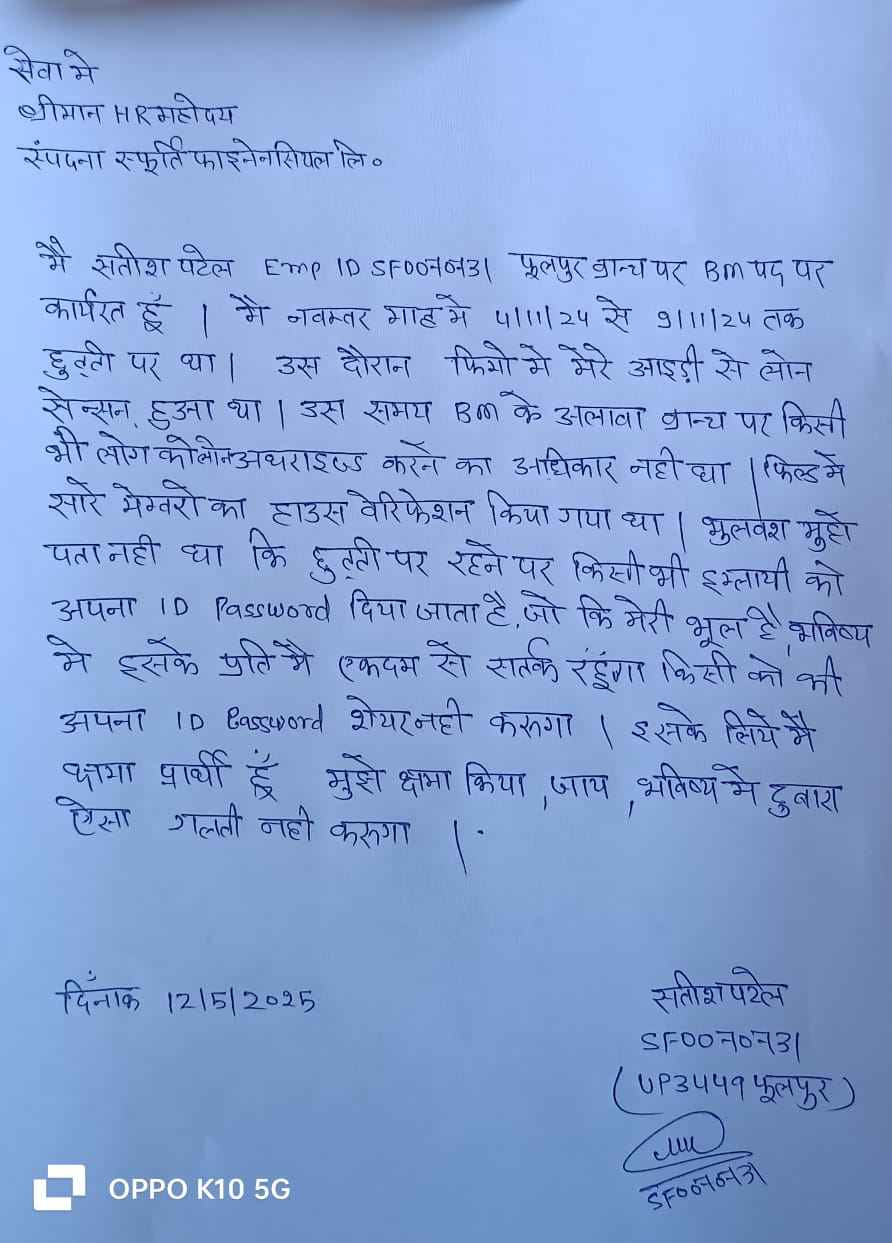 सेवा मे
श्रीमान HR महोदय
स्पंदना स्फूर्ति फाइनेनसियल लि०
मै सतीश पटेल Emp ID SF0070731 फूलपुर ब्रान्च पर BM पद पर
कार्यरत हूँ । मै नवम्तर माह मे 4/11/24 से 9/11/24 तक
छुट्ती पर था । उस दौरान फिगो मे मेरे आइड़ी से लोन
सेन्सन, हुआ था । उस समय BM के अलावा ब्रान्च पर किसी
भी लोग को लोन अथराइज्ड करने का अधिकार नही था । फिल्ड मे
सारे मेम्वरो का हाउस वेरिफेशन किया गया था । भुलवश मुझे
पता नही था कि छुट्ती पर रहने पर किसी भी इम्लायी को
अपना ID Password दिया जाता है, जो कि मेरी भूल है, भविष्य
मे इसके प्रति मै एकदम से सतर्क रहूंगा किसी को भी
अपना ID Password शेयर नही करूगा । इसके लिये मै
क्षमा प्रार्थी हूँ मुझे क्षमा किया, जाय, भविष्य मे दुबारा
ऐसा गलती नही करूगा ।
दिनाँक 12/5/2025
सतीश पटेल
SF0070731
(UP3449 फूलपुर)
SF0070731
OPPO K10 5G